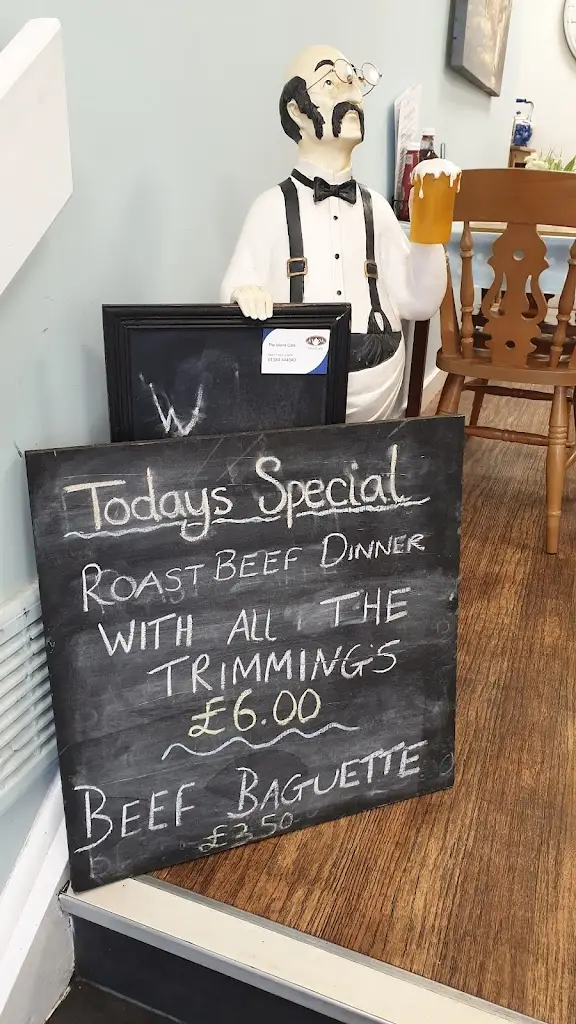 The Island Cafe
W
Todays Special
ROAST BEEF DINNER
WITH ALL THE
TRIMMINGS
£6.00
BEEF BAGUETTE
£3.50